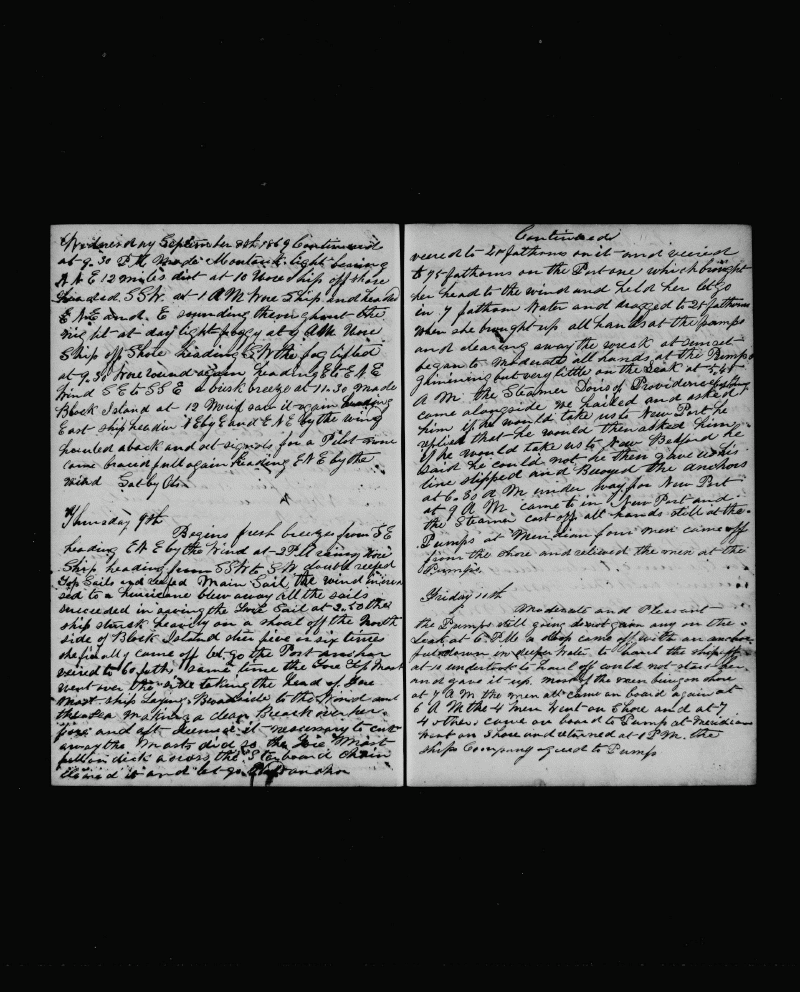 Wednesday September 8th 1869 Continued
at 9.30 P.M. Made Montock light bearing
N N E 12 miles dist at 10 Wore Ship off shore
headed S S W. at 1 A M Wore Ship and headed
E N E and E sounding through out the
night at day light foggy at 4 AM Wore
Ship off Shore heading S W the fog lifted
at 9.30 Wore round again heading E to E N E
Wind S E to S S E a brisk breeze at 11.30 made
Block Island at 12 Merid saw it again bearing
East ship headin E by E and E N E by the wind
hauled aback and set signals for a Pilot none
came braced full again heading E N E by the
wind Lat by Obs
Thursday 9th
Begins fresh breezes from S E
heading E N E by the Wind at 2 P.M. rainy Wore
Ship heading from S S W to S W double reefed
Top Sails and reefed Main Sail, the wind increa
sed to a hurricane blew away all the sails
succeeded in saving the Fore Sail at 3.50 the
ship struck heavily on a shoal off the North
side of Block Island struck five or six times
she finally came off let go the Port anchor
veired to 60 faths, same time the Fore Top Mast
went over the side taking the head of Fore
Mast. ship Laying Broadside to the Wind and
the sea making a clean Breach over her
fore and aft deemed it necessary to cut
away the Masts did so the Fore Mast
fell on deck across the Starboard chain
cleared it and let go that anchor
Continued
veered to 20 fathoms on it and veered
to 75 fathoms on the Port one which brought
her head to the wind and held her let go
in 7 fathom Water and dragged to 21 fathoms
when she brought up all hands at the pumps
and clearing away the wreck at sunset
began to moderate all hands at the Pumps
gaining but very little on the Leak at 5.45
A M. the Steamer Doris of Providence
came alongside we hailed and asked
him if he would take us to New Port he
replied that he would then asked him
if he would take us to New Bedford he
said he could not he then gave us his
line slipped and Buoyed the anchors
at 6.30 A M under way for New Port
at 9 A M. came to in New Port and
the Steamer cast off all hands still at the
Pumps at Meridian four men came off
from the shore and relieved the men at the
Pumps.
Friday 10th
Moderate and Pleasant
the Pumps still going dont gain any on the
Leak at 6 P.M a sloop came off with an anchor
put down in deeper Water to haul the ship off
at 10 undertook to haul off could not start her
and gave it up. most of the men being on shore
at 7 A M the men all came on board again at
6 A M the 4 men Went on Shore and at 7
4 other came on board to Pump at Meridian
Went on Shore and returned at 1 P.M. the
ships Company agreed to Pump